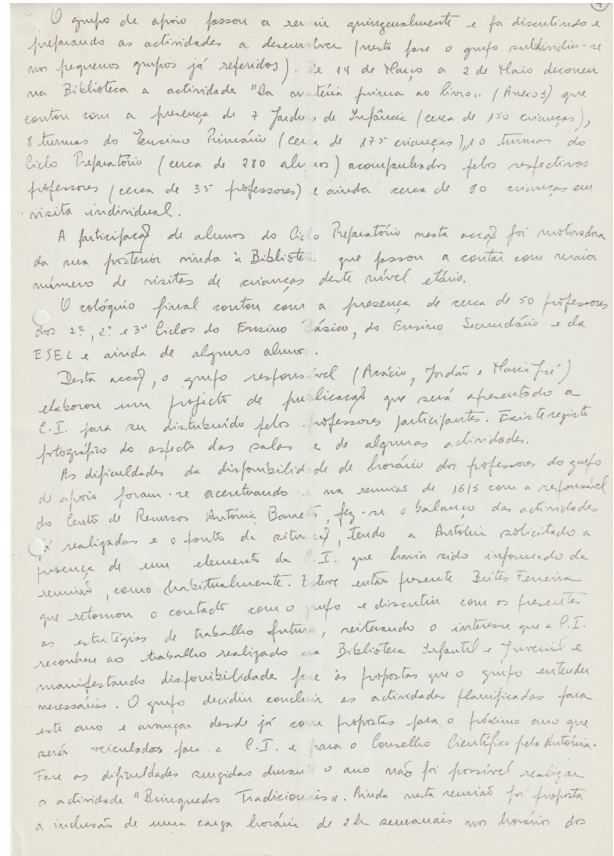 4
O grupo de apoio passou a reunir quinzenalmente e foi discutindo e
preparando as actividades a desenvolver (nesta fase o grupo subdividiu-se
nos pequenos grupos já referidos). De 14 de Março a 2 de Maio decorreu
na Biblioteca a actividade "Da matéria prima ao livro" (Anexo 3) que
contou com a presença de 7 Jardins de Infância (cerca de 150 crianças),
8 turmas do Ensino Primário (cerca de 175 crianças), 10 turmas do
Ciclo Preparatório (cerca de 280 alunos) acompanhados pelos respectivos
professores (cerca de 35 professores) e ainda cerca de 80 crianças em
visita individual.
A participação de alunos do Ciclo Preparatório nesta acção foi motivadora
da sua posterior vinda à Biblioteca que passou a contar com maior
número de visitas de crianças deste nível etário.
O colóquio final contou com a presença de cerca de 50 professores
dos 1º, 2º e 3º Ciclos do Ensino Básico, do Ensino Secundário e da
ESEL e ainda de alguns alunos.
Desta acção, o grupo responsável (Acácio, Jordão e Maria José)
elaborou um projecto de publicação que será apresentado à
C.I. para ser distribuído pelos professores participantes. Existe registo
fotográfico do aspecto das salas e de algumas actividades.
As dificuldades da disponibilidade de horário dos professores do grupo
de apoio foram-se acentuando e na reunião de 16/5 com a responsável
do Centro de Recursos Antónia Barreto, fez-se o balanço das actividades
já realizadas e o ponto da situação, tendo a Antónia solicitado a
presença de um elemento da C.I. que havia sido informado da
reunião, como habitualmente. Esteve então presente Brites Ferreira
que retomou o contacto com o grupo e discutiu com os presentes
as estratégias de trabalho futuro, reiterando o interesse que a C.I.
reconhece ao trabalho realizado na Biblioteca Infantil e Juvenil e
manifestando disponibilidade face às propostas que o grupo entender
necessárias. O grupo decidiu concluir as actividades planificadas para
este ano e avançar desde já com propostas para o próximo ano que
será veiculadas para a C.I. e para o Conselho Científico pela Antónia.
Face as dificuldades surgidas durante o ano não foi possível realizar
a actividade "Brinquedos Tradicionais". Ainda nesta reunião foi proposta
a inclusão de uma carga horária de 2h semanais nos horários dos